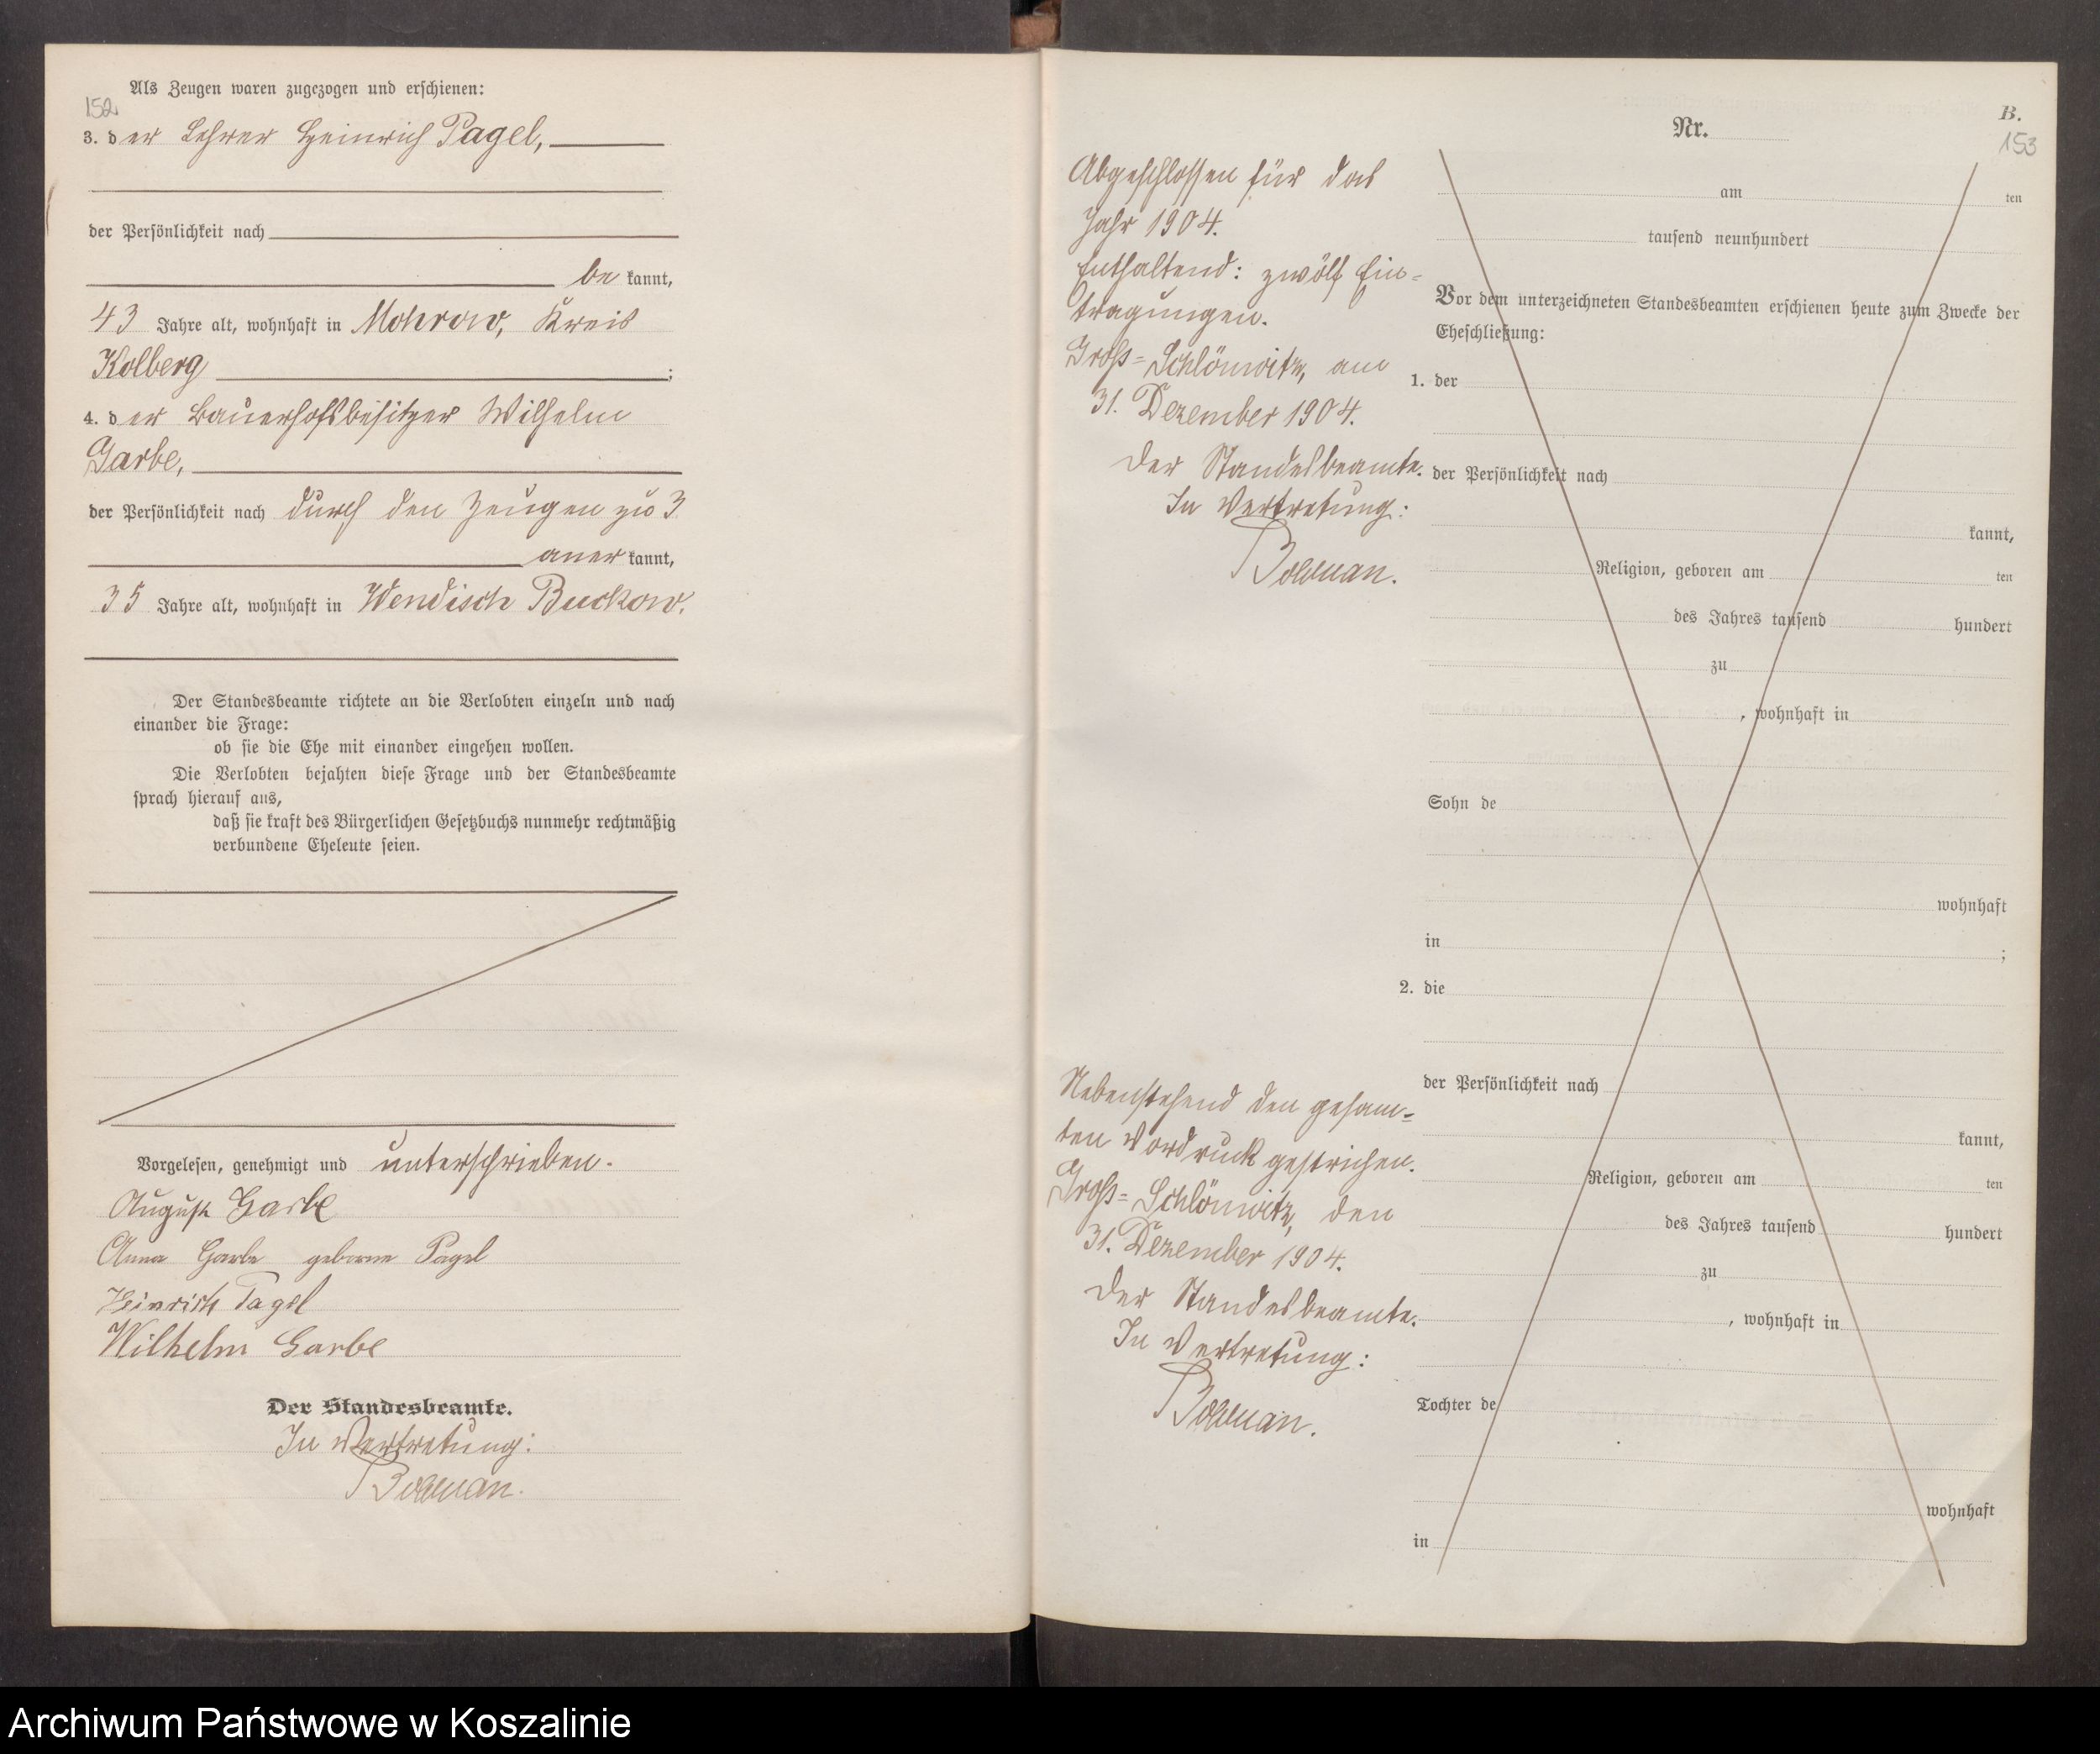 152
Als Zeugen waren zugezogen und erschienen:
3. der Lehrer Heinrich Pagel,
der Persönlichkeit nach
be kannt,
43 Jahre alt, wohnhaft in Mohrow, Kreis
Kolberg ;
4. der Bauerhofsbesitzer Wilhelm
Garbe,
der Persönlichkeit nach durch den Zeugen zu 3
aner kannt,
35 Jahre alt, wohnhaft in Wendisch Buckow.
Der Standesbeamte richtete an die Verlobten einzeln und nach
einander die Frage:
ob sie die Ehe mit einander eingehen wollen.
Die Verlobten bejahten diese Frage und der Standesbeamte
sprach hierauf aus,
daß sie kraft des Bürgerlichen Gesetzbuchs nunmehr rechtmäßig
verbundene Eheleute seien.
Vorgelesen, genehmigt und unterschrieben.
August Garbe
Anna Garbe geborne Pagel
Heinrich Pagel
Wilhelm Garbe
Der Standesbeamte.
In Vertretung:
B.
153
Abgeschlossen für das
Jahr 1904.
Enthaltend: zwölf Ein=
tragungen.
Groß=Schlönwitz, am
31. Dezember 1904.
Der Standesbeamte.
In Vertretung:
Nebenstehend den gesam=
ten Vordruck gestrichen.
Groß=Schlönwitz, den
31. Dezember 1904.
Der Standesbeamte.
In Vertretung:
Nr.
am ten
tausend neunhundert
Vor dem unterzeichneten Standesbeamten erschienen heute zum Zwecke der
Eheschließung:
1. der
der Persönlichkeit nach
kannt,
Religion, geboren am ten
des Jahres tausend hundert
zu
, wohnhaft in
Sohn de
wohnhaft
in ;
2. die
der Persönlichkeit nach
kannt,
Religion, geboren am ten
des Jahres tausend hundert
zu
, wohnhaft in
Tochter de
wohnhaft
in
Archiwum Państwowe w Koszalinie